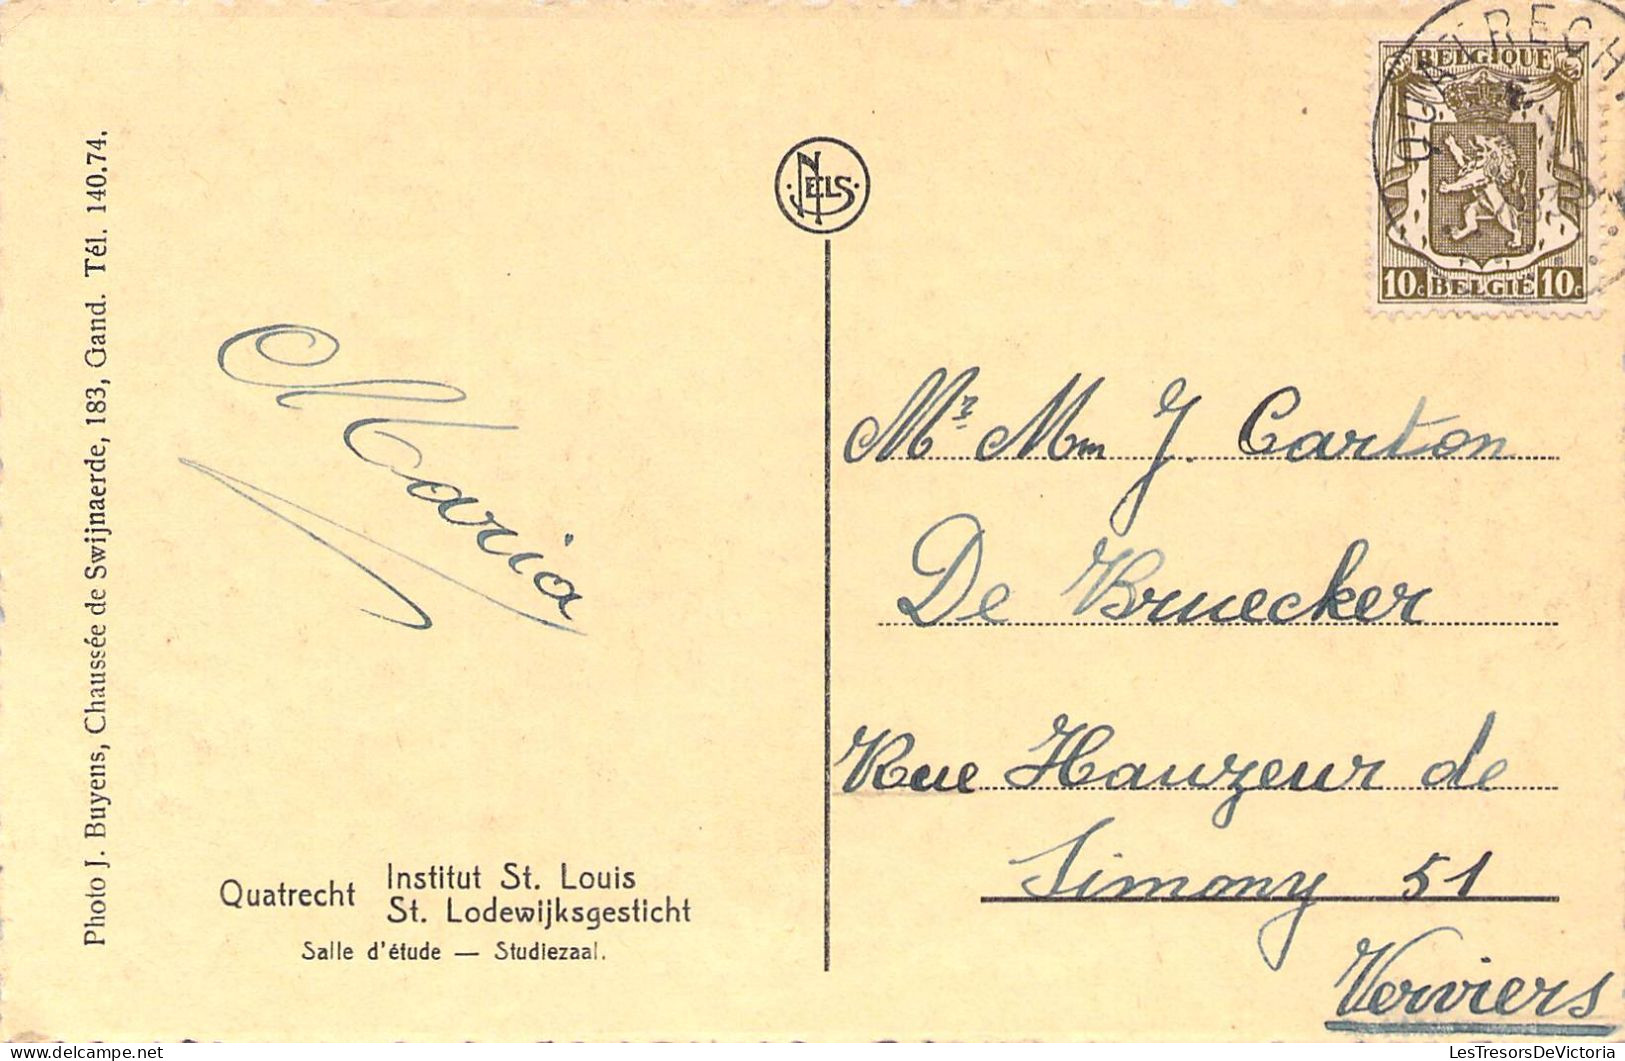 Photo J. Buyens, Chaussée de Swijnaerde, 183, Gand. Tél. 140.74.
NELS
QUATRECHT
BELGIQUE
10c BELGIË 10c
Maria
Mr Mm J. Carton
De Bruecker
Rue Hauzeur de
Simony 51
Verviers
Quatrecht Institut St. Louis
St. Lodewijksgesticht
Salle d'étude — Studiezaal.
LesTresorsDeVictoria